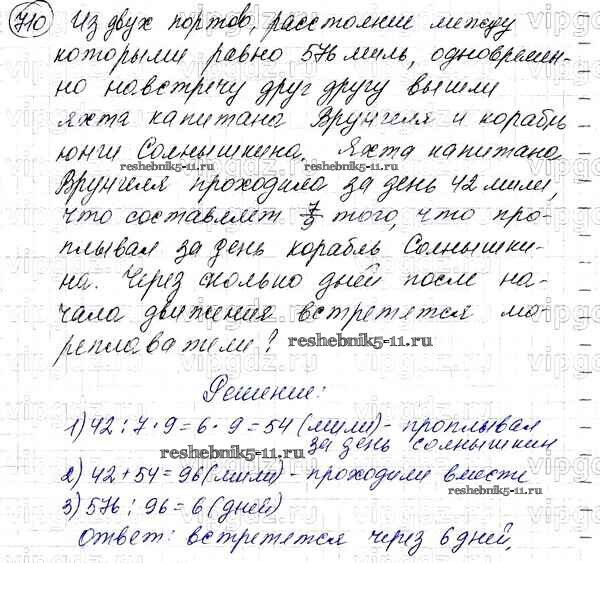 710 Из двух портов, расстояние между
которыми равно 576 миль, одновремен-
но навстречу друг другу вышли
яхта капитана Врунгеля и корабль
юнги Солнышкина. Яхта капитана
Врунгеля проходила за день 42 мили,
что составляет 7/9 того, что про-
плывал за день корабль Солнышки-
на. Через сколько дней после на-
чала движения встретятся мо-
реплаватели?
Решение:
1) 42 : 7 · 9 = 6 · 9 = 54 (мили) - проплывал
за день солнышкин
2) 42 + 54 = 96 (мили) - проходили вместе
3) 576 : 96 = 6 (дней)
Ответ: встретятся через 6 дней.
www.reshebnik5-11.ru
www.reshebnik5-11.ru
www.reshebnik5-11.ru
www.reshebnik5-11.ru